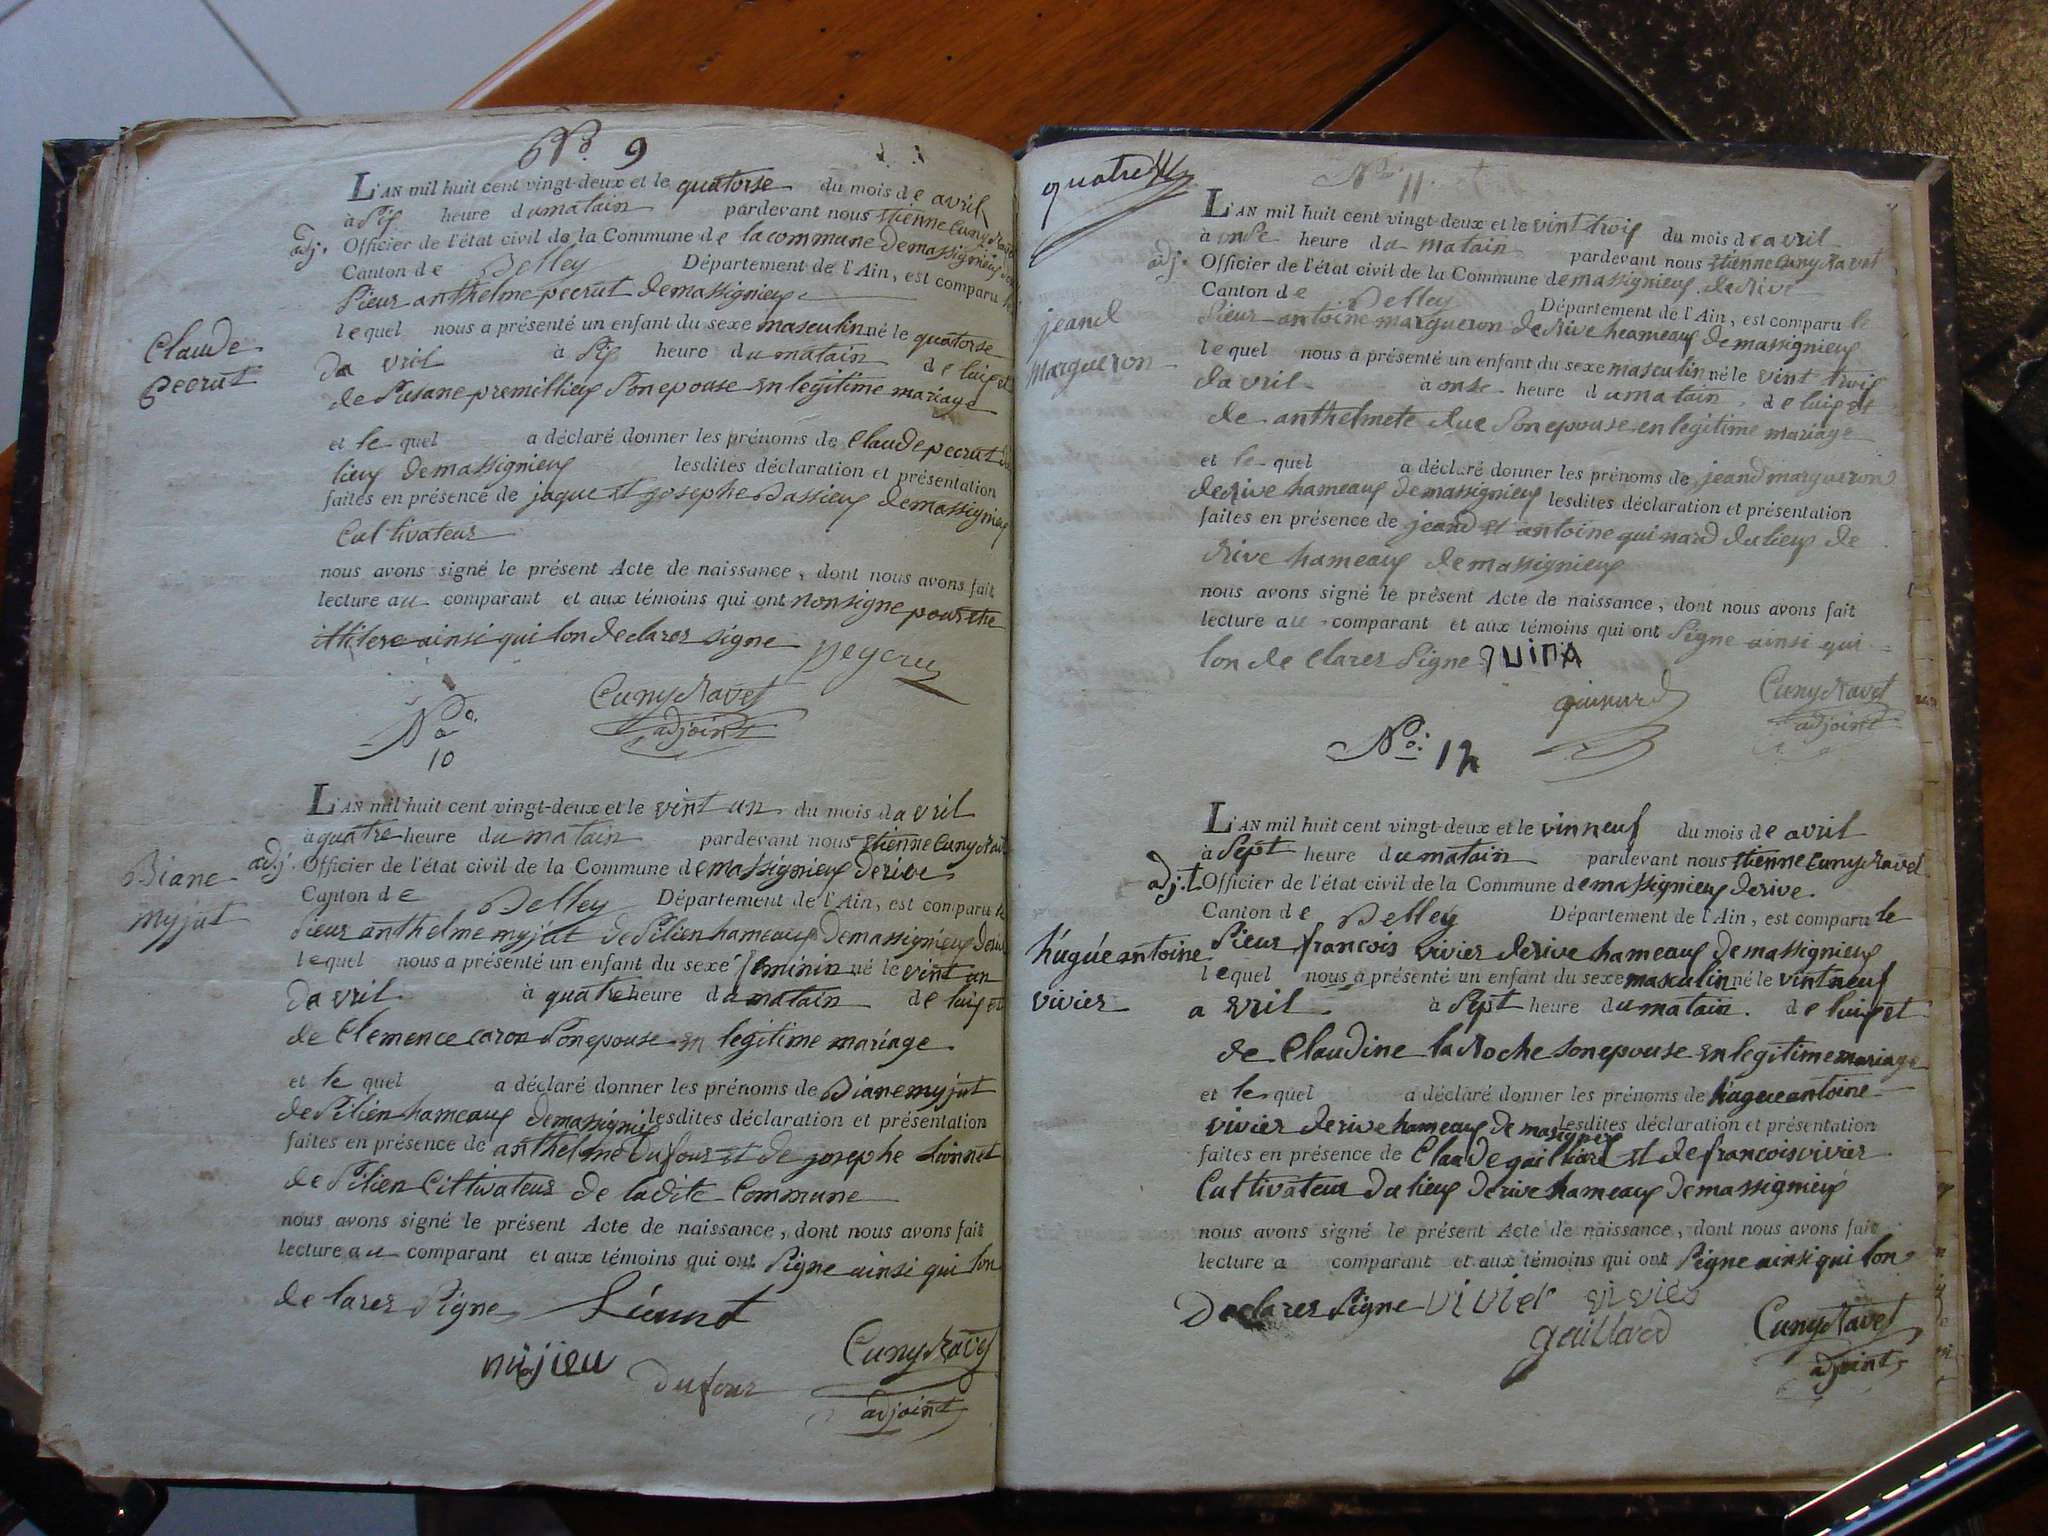 No. 9
L'AN mil huit cent vingt-deux et le quatorse du mois de avril
à Six heure du matain pardevant nous Etienne Cuny Ravet
adj. Officier de l'état civil de la Commune de la commune de massignieux
Canton de Belley Département de l'Ain, est comparu
Sieur anthelme pecrut de massignieux
lequel nous a présenté un enfant du sexe masculin né le quatorse
Claude
pecrut
da vril à Six heure du matain de lui et
de Susane premillieux Son epouse En legitime mariage
et le quel a déclaré donner les prénoms de Claude pecrut du
lieux de massignieux lesdites déclaration et présentation
faites en présence de jaque Et josephe Bassieux de massignieux
Cultivateur
nous avons signé le présent Acte de naissance, dont nous avons fait
lecture au comparant et aux témoins qui ont non signe pour etre
illitere ainsi qui lon declarer signe
Cuny Ravet
adjoint
No.
10
L'AN mil huit cent vingt-deux et le vint un du mois d avril
à quatre heure du matain pardevant nous Etienne Cuny Ravet
adj. Officier de l'état civil de la Commune de massignieux de rive
Canton de Belley Département de l'Ain, est comparu le
Biane
myjut
Sieur anthelme myjut de Silien hameaux de massignieux de rive
lequel nous a présenté un enfant du sexe feminin né le vint un
da vril à quatre heure du matain de lui et
de Clemence caron Son epouse en legitime mariage
et le quel a déclaré donner les prénoms de Biane myjut
de Silien hameaux de massignieux lesdites déclaration et présentation
faites en présence de anthelme Dufour et de josephe Lionnet
de Silien Cittivateur de ladite Commune
nous avons signé le présent Acte de naissance, dont nous avons fait
lecture au comparant et aux témoins qui ont Signe ainsi qui lon
de larer Signe
mijieu
Dufour
Cuny Ravet
adjoint
quatre
No. 11
L'AN mil huit cent vingt-deux et le vint trois du mois de avril
à onse heure du matain pardevant nous Etienne Cuny Ravet
adj. Officier de l'état civil de la Commune de massignieux de rive
Canton de Belley Département de l'Ain, est comparu le
jeand
margueron
Sieur antoine margueron de rive heameaux de massignieux
lequel nous a présenté un enfant du sexe masculin né le vint trois
da vril à onse heure du matain de lui et
de anthelmete duc Son epouse en legitime mariage
et le quel a déclaré donner les prénoms de jeand margueron
de rive hameaux de massignieux lesdites déclaration et présentation
faites en présence de jeand et antoine quinard du lieux de
rive hameaux de massignieux
nous avons signé le présent Acte de naissance, dont nous avons fait
lecture au comparant et aux témoins qui ont Signe ainsi qui
lon de clarer Signe quinA
quinard
Cuny Ravet
adjoint
No. 12
L'AN mil huit cent vingt-deux et le vin neuf du mois de avril
à Sept heure du matain pardevant nous Etienne Cuny Ravet
adj.t Officier de l'état civil de la Commune de massignieux de rive.
Canton de Belley Département de l'Ain, est comparu le
hugue antoine
vivier
Sieur francois vivier de rive hameaux de massignieux
lequel nous a présenté un enfant du sexe masculin né le vint neuf
a vril à Sept heure du matain. de lui et
de Claudine la Roche son epouse en legitime mariage
et le quel a déclaré donner les prénoms de hugue antoine
vivier de rive hameaux de massigneux lesdites déclaration et présentation
faites en présence de Claude gailliard et de francois vivier
Cultivateur du lieux de rive hameaux de massignieux
nous avons signé le présent Acte de naissance, dont nous avons fait
lecture a comparant et aux témoins qui ont Signe ainsi qui lon
Declarer Signe vivier vivier
gaillard
Cuny Ravet
adjoint